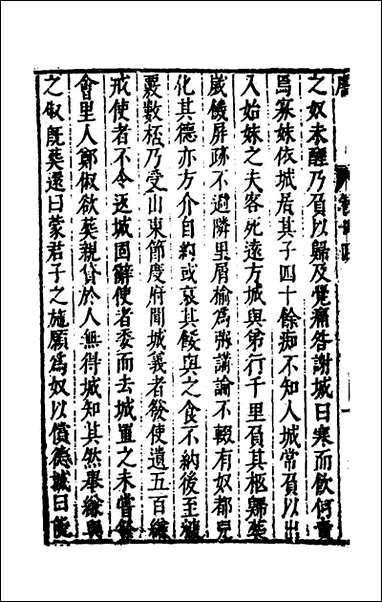 之奴未醒乃負以歸及覺痛咎謝城曰寒而飲何責
焉寡妹依城居其子四十餘痴不知人城常負以出
入始妹之夫客死遠方城與弟行千里負其柩歸葬
歲饑屏跡不過隣里屑榆為粥講論不輟有奴都兒
化其德亦方介自約或哀其餒與之食不納後至糠
覈數桮乃受山東節度府聞城義者發使遺五百縑
戒使者不令返城固辭使者委而去城置之未嘗發
會里人鄭俶欲葬親貸於人無得城知其然舉縑與
之俶既葬還曰蒙君子之施願為奴以償德城曰能